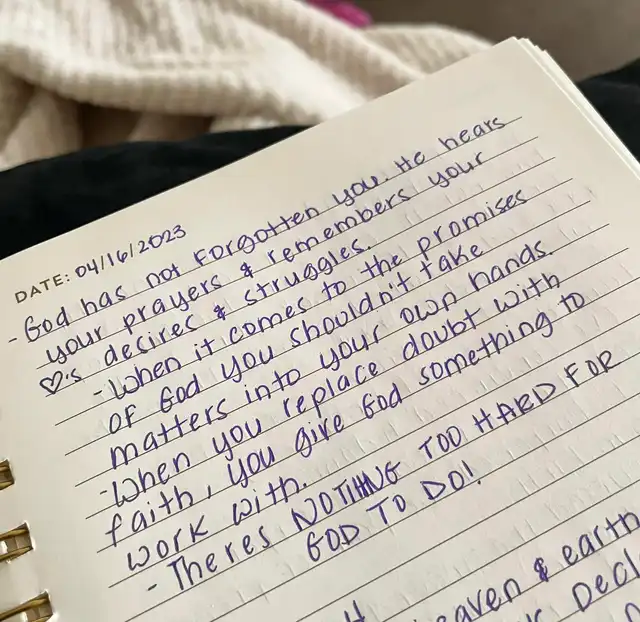 DATE: 04/16/2023
- God has not forgotten you. He hears
your prayers & remembers your
♡'s desires & struggles.
- When it comes to the promises
of God you shouldn't take
matters into your own hands.
- When you replace doubt with
faith, you give God something to
work with.
- Theres NOTHING TOO HARD FOR
GOD TO DO!
heaven & earth